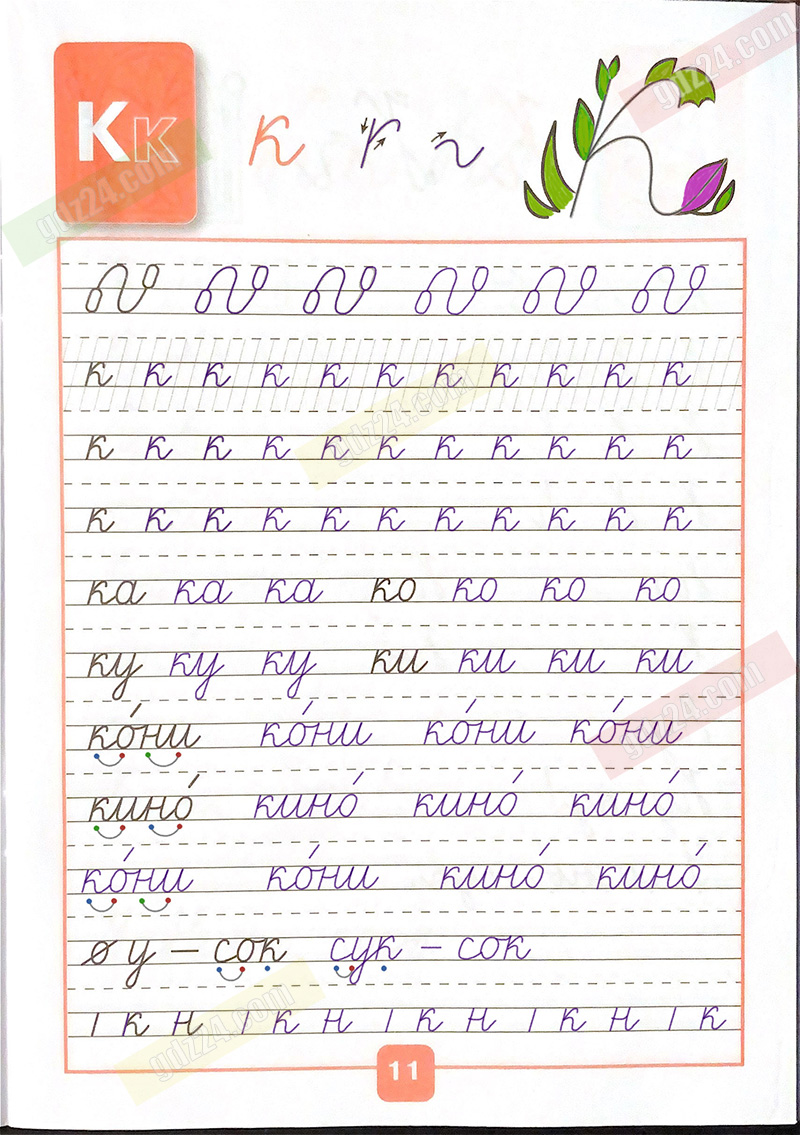 Кк к
к к к к к к к к к к к
к к к к к к к к к к к
к к к к к к к к к к к
ка ка ка ко ко ко ко
ку ку ку ки ки ки ки
ко́ни ко́ни ко́ни ко́ни
кино́ кино́ кино́ кино́
ко́ни ко́ни кино́ кино́
о у – сок сук – сок
ı к н ı к н ı к н ı к н ı к
11
gdz24.com
gdz24.com
gdz24.com
gdz24.com
gdz24.com